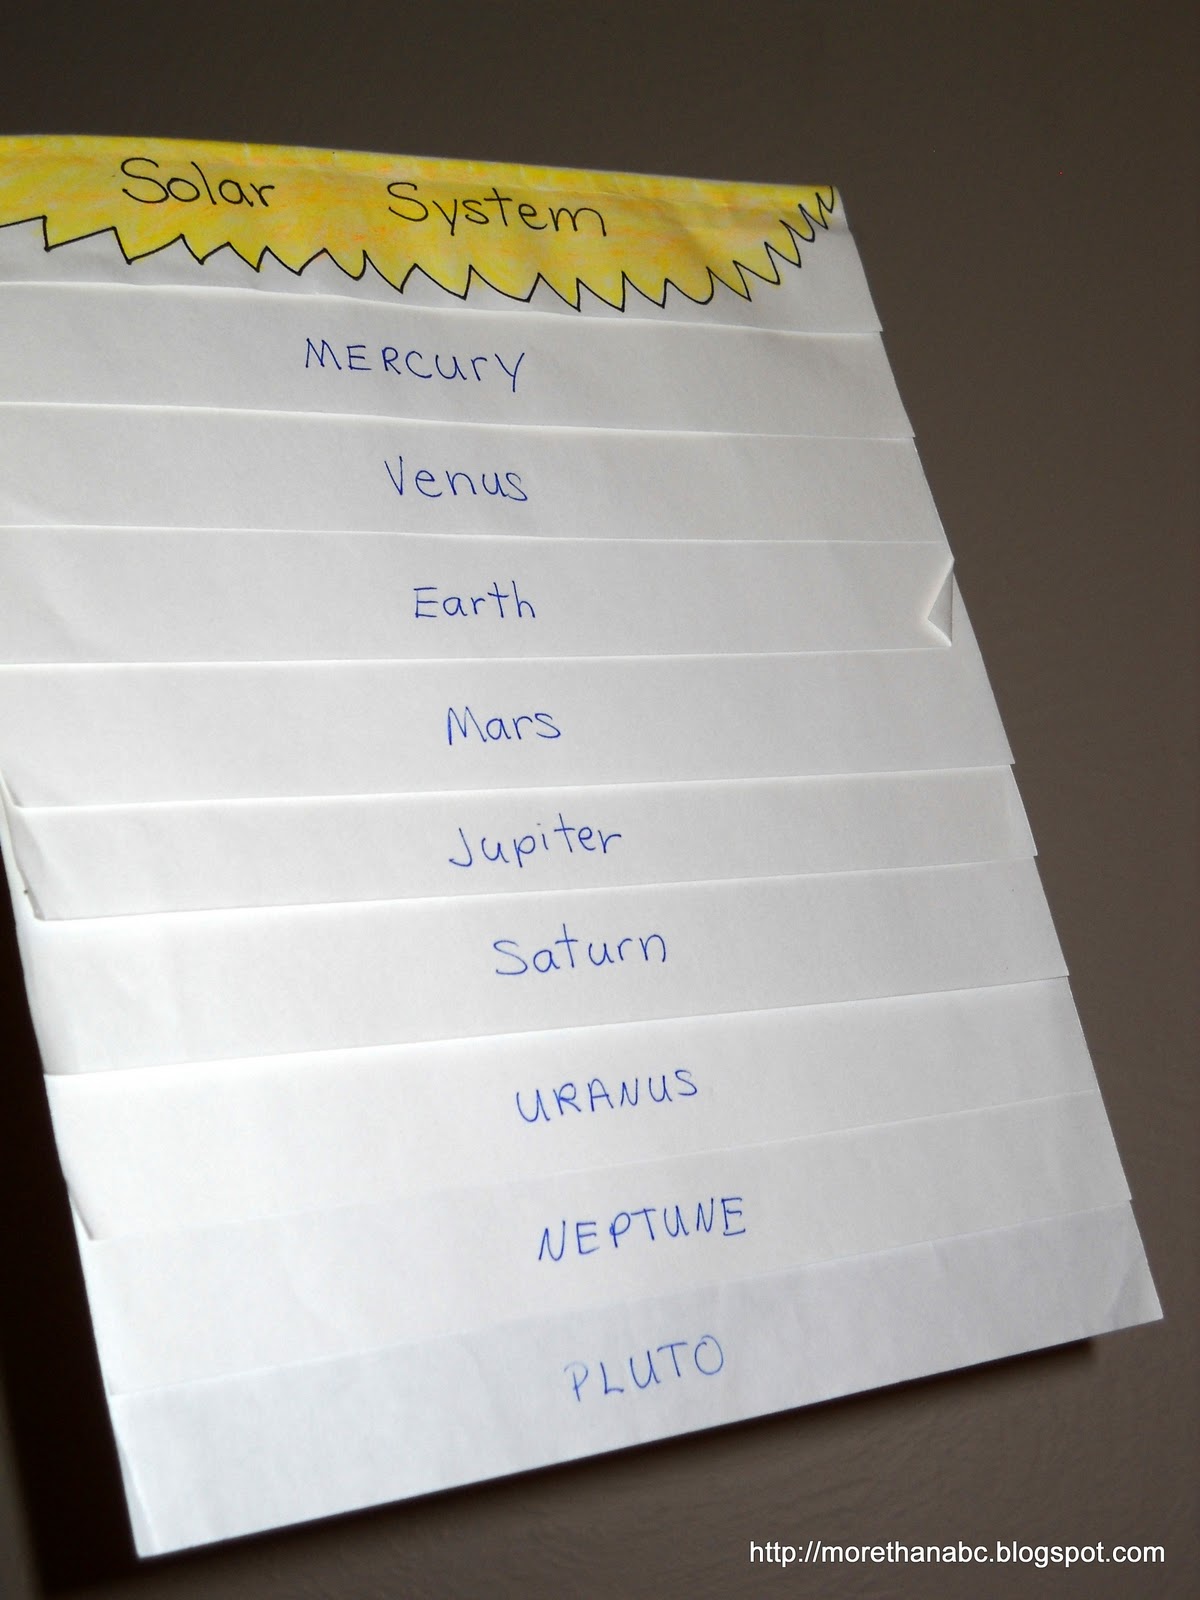 Solar System
MERCURY
Venus
Earth
Mars
Jupiter
Saturn
URANUS
NEPTUNE
PLUTO
http://morethanabc.blogspot.com